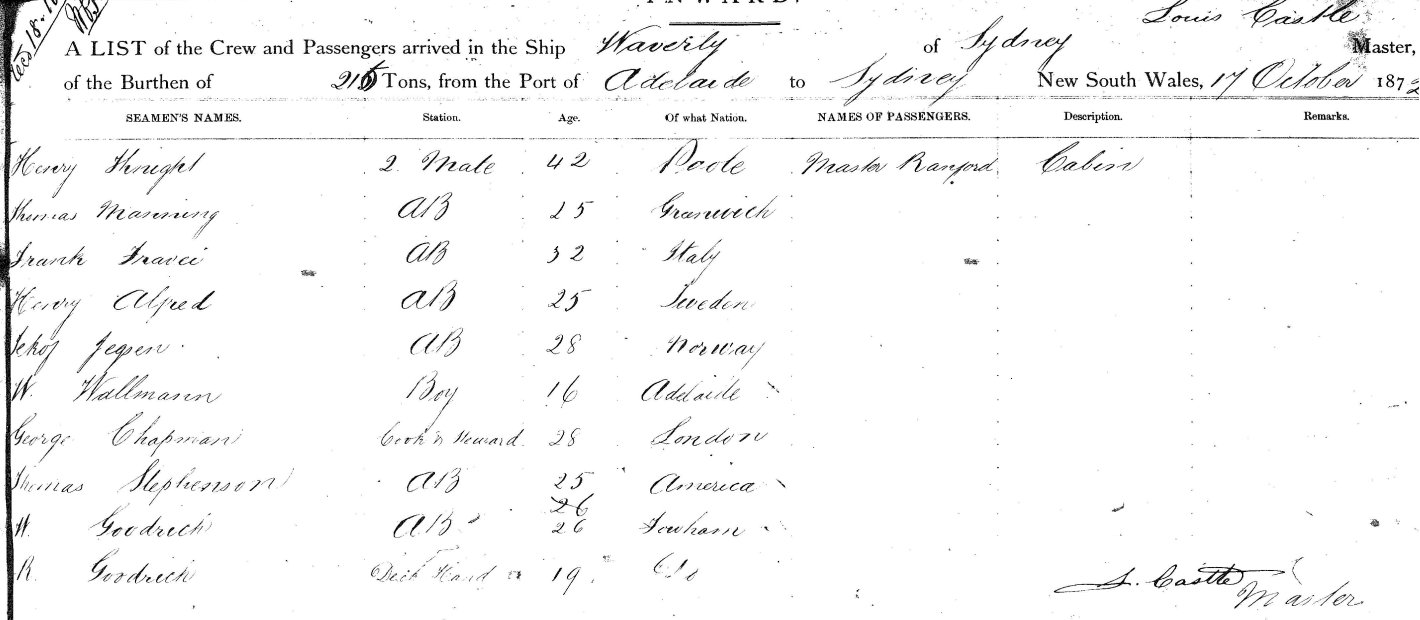 INWARD.
Louis Castle
A LIST of the Crew and Passengers arrived in the Ship Waverly of Sydney Master,
of the Burthen of Tons, from the Port of Adelaide to Sydney New South Wales, 17 October 1872
SEAMEN'S NAMES. Station. Age. Of what Nation. NAMES OF PASSENGERS. Description. Remarks.
Henry Knight 2 Mate 42 Poole Master Ranford Cabin
Thomas Manning AB 25 Greenwich
Frank AB 32 Italy
Henry Alfred AB 25 Sweden
AB 28 Norway
W. Wallmann Boy 16 Adelaide
George Chapman Cook & Steward 28 London
Thomas Stephenson AB 25 America
26
W. Goodrich AB 26
R. Goodrich Deck Hand 19 Do
L. Castle
Master